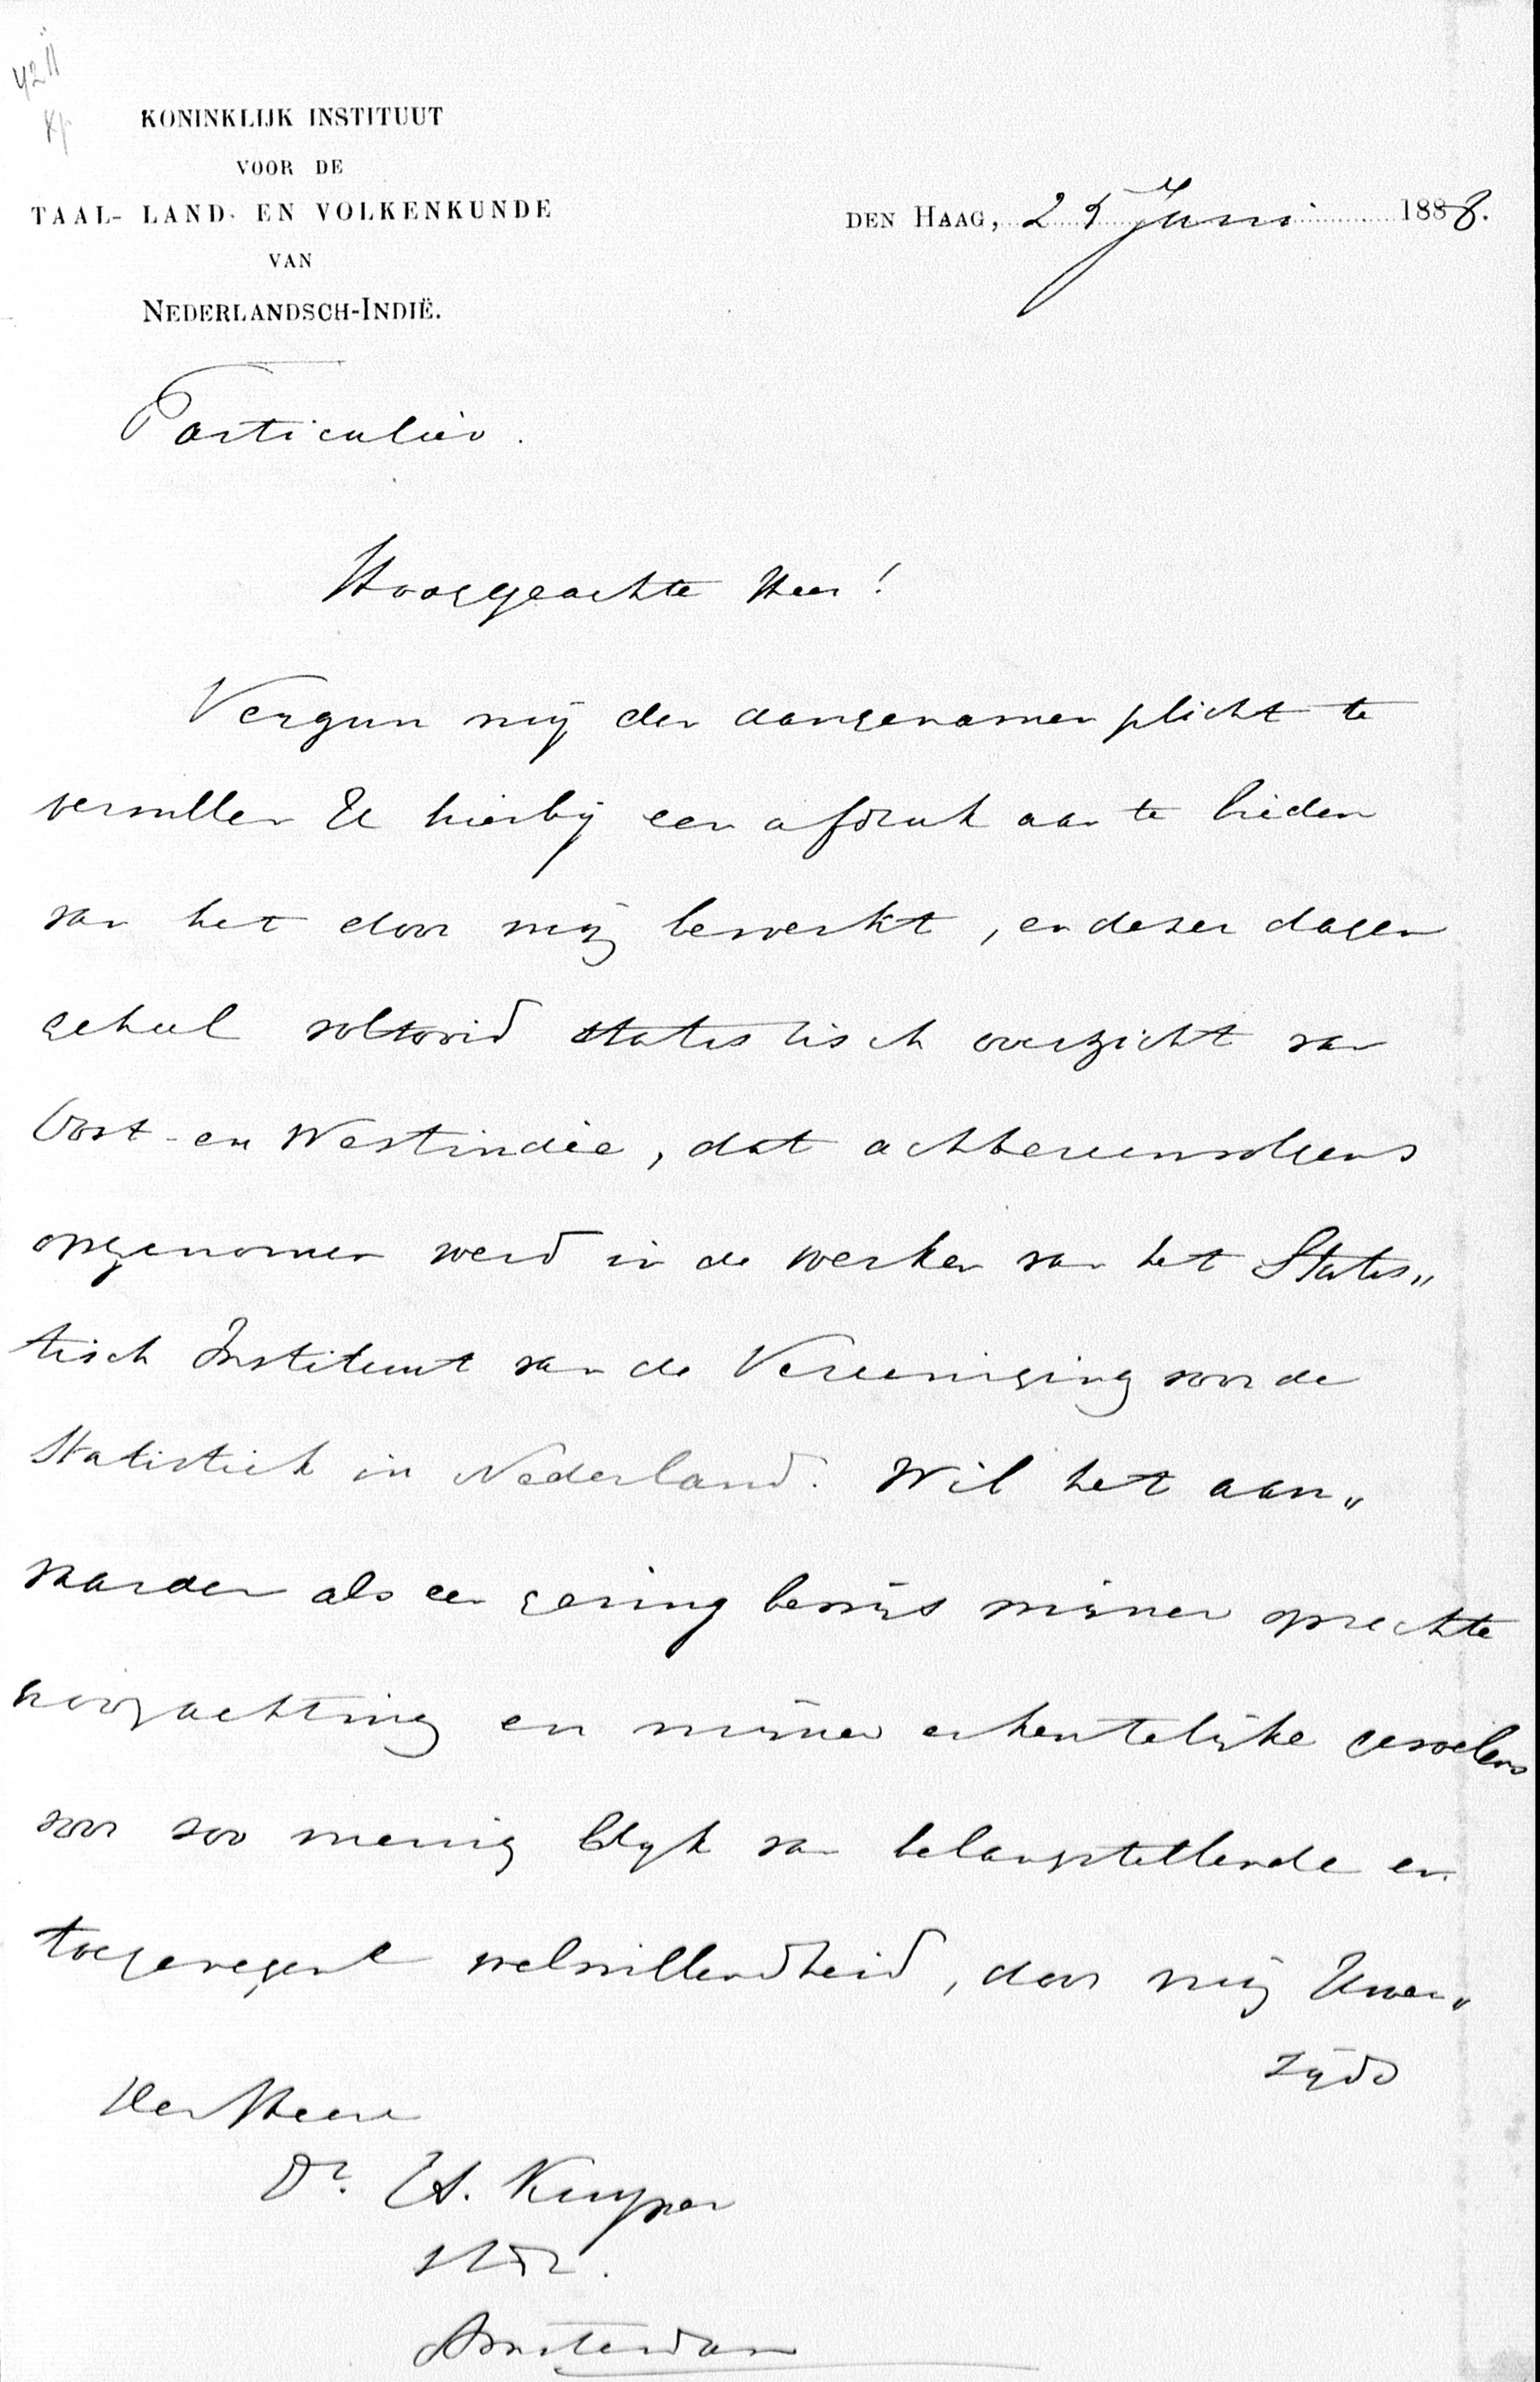 4211
Kp
KONINKLIJK INSTITUUT
VOOR DE
TAAL- LAND- EN VOLKENKUNDE
VAN
NEDERLANDSCH-INDIË.
DEN HAAG, 25 Juni 1888.
Particulier.
Hooggeachte Heer!
Vergun mij den aangenamen plicht te
vervullen U hierbij een afdruk aan te bieden
van het door mij bewerkt, en dezer dagen
geheel voltooid statistisch overzicht van
Oost- en Westindië, dat achtereenvolgens
opgenomen werd in de werken van het Statis„
tisch Instituut van de Vereeniging voor de
Statistiek in Nederland. Wil het aan„
vaarden als een gering bewijs mijner oprechte
hoogachting en mijner erkentelijke gevoelens
voor zoo menig blijk van belangstellende en
toegenegene welwillendheid, door mij Uwer„
zijds
Den Heere
Dr. A. Kuyper
Amsterdam